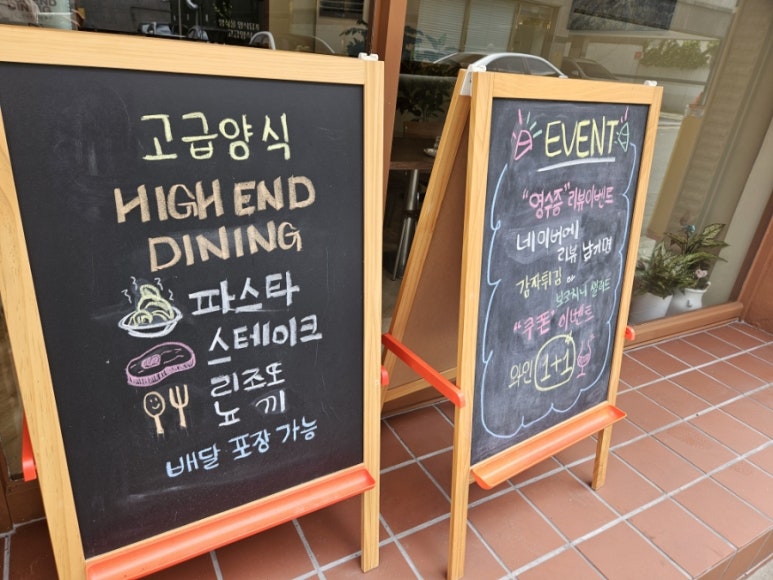 고급양식
HIGH END
DINING
파스타
스테이크
리조또
뇨끼
배달 포장 가능
EVENT
"영수증" 리뷰이벤트
네이버에
리뷰 남기면
감자튀김 or
보코치니 샐러드
"쿠폰" 이벤트
와인 1+1
고급양식